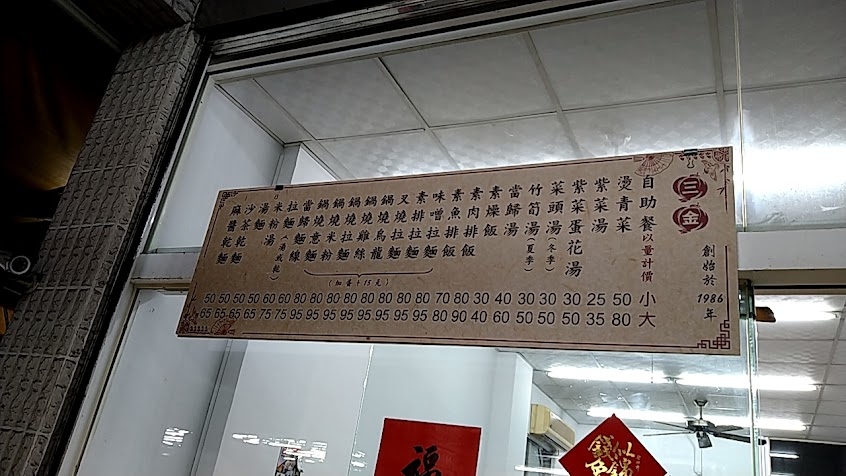 三金
創始於1986年
自助餐以量計價 小 大
燙青菜 50 80
紫菜湯 25 35
紫菜蛋花湯 30 50
菜頭湯(冬季) 30 50
竹筍湯(夏季) 30 50
當歸湯 40 60
素燥飯 30 40
素肉排飯 80 90
素魚排飯 70 80
味噌拉麵 80 95
素排拉麵 80 95
叉燒拉麵 80 95
鍋燒烏龍麵 80 95
鍋燒雞絲麵 80 95
鍋燒拉麵 80 95
鍋燒米粉 80 95
鍋燒意麵 80 95
(加+15元)
當歸麵線 80 95
拉麵(湯或乾)
米粉湯 60 75
湯麵 60 75
沙茶乾麵 50 65
麻醬乾麵 50 65
福